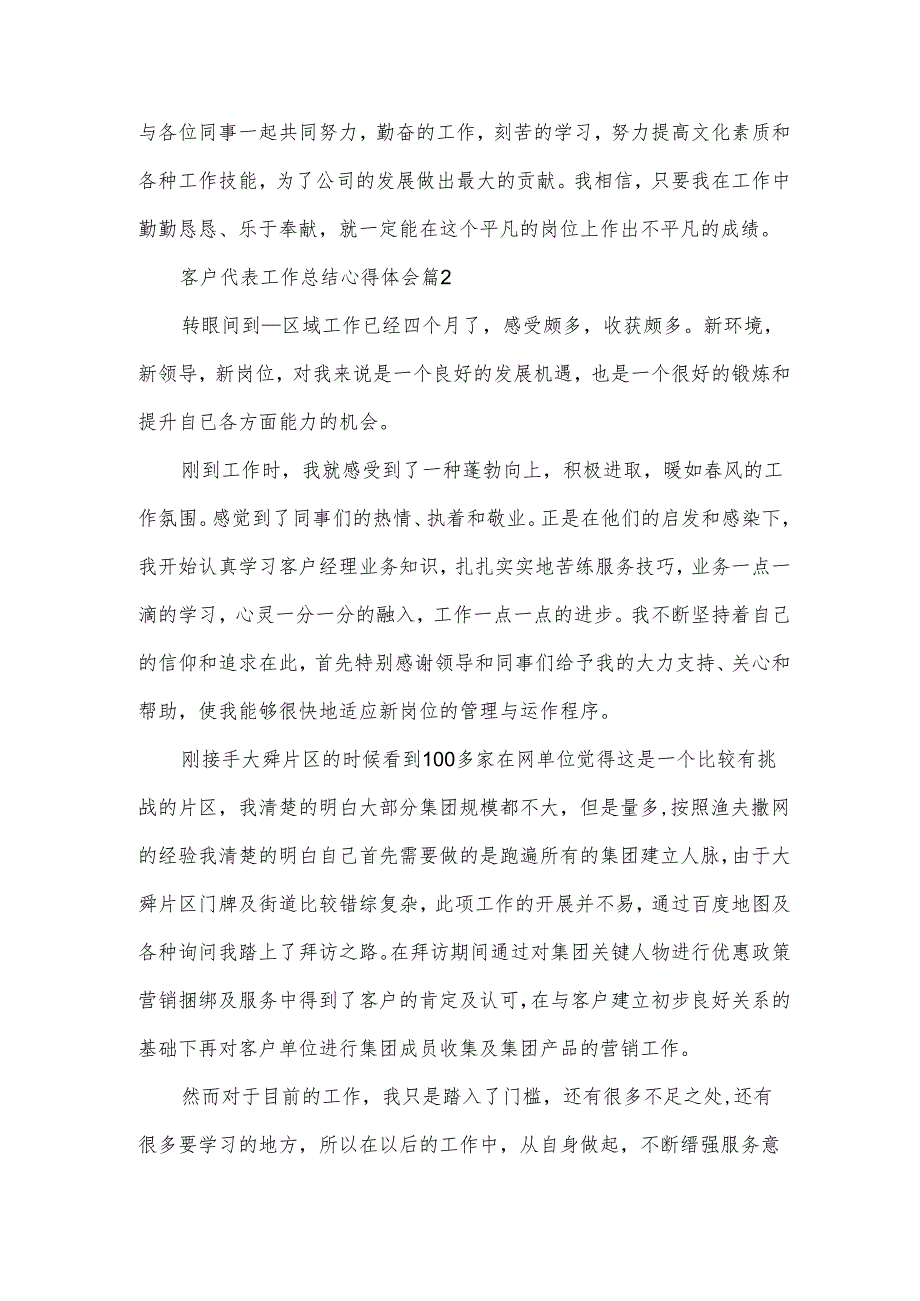 与各位同事一起共同努力，勤奋的工作，刻苦的学习，努力提高文化素质和
各种工作技能，为了公司的发展做出最大的贡献。我相信，只要我在工作中
勤勤恳恳、乐于奉献，就一定能在这个平凡的岗位上作出不平凡的成绩。
客户代表工作总结心得体会篇2
转眼间到—区域工作已经四个月了，感受颇多，收获颇多。新环境，
新领导，新岗位，对我来说是一个良好的发展机遇，也是一个很好的锻炼和
提升自已各方面能力的机会。
刚到工作时，我就感受到了一种蓬勃向上，积极进取，暖如春风的工
作氛围。感觉到了同事们的热情、执着和敬业。正是在他们的启发和感染下，
我开始认真学习客户经理业务知识，扎扎实实地苦练服务技巧，业务一点一
滴的学习，心灵一分一分的融入，工作一点一点的进步。我不断坚持着自己
的信仰和追求在此，首先特别感谢领导和同事们给予我的大力支持、关心和
帮助，使我能够很快地适应新岗位的管理与运作程序。
刚接手大舜片区的时候看到100多家在网单位觉得这是一个比较有挑
战的片区，我清楚的明白大部分集团规模都不大，但是量多,按照渔夫撒网
的经验我清楚的明白自己首先需要做的是跑遍所有的集团建立人脉,由于大
舜片区门牌及街道比较错综复杂，此项工作的开展并不易，通过百度地图及
各种询问我踏上了拜访之路。在拜访期间通过对集团关键人物进行优惠政策
营销捆绑及服务中得到了客户的肯定及认可,在与客户建立初步良好关系的
基础下再对客户单位进行集团成员收集及集团产品的营销工作。
然而对于目前的工作，我只是踏入了门槛，还有很多不足之处,还有
很多要学习的地方，所以在以后的工作中，从自身做起，不断缙强服务意